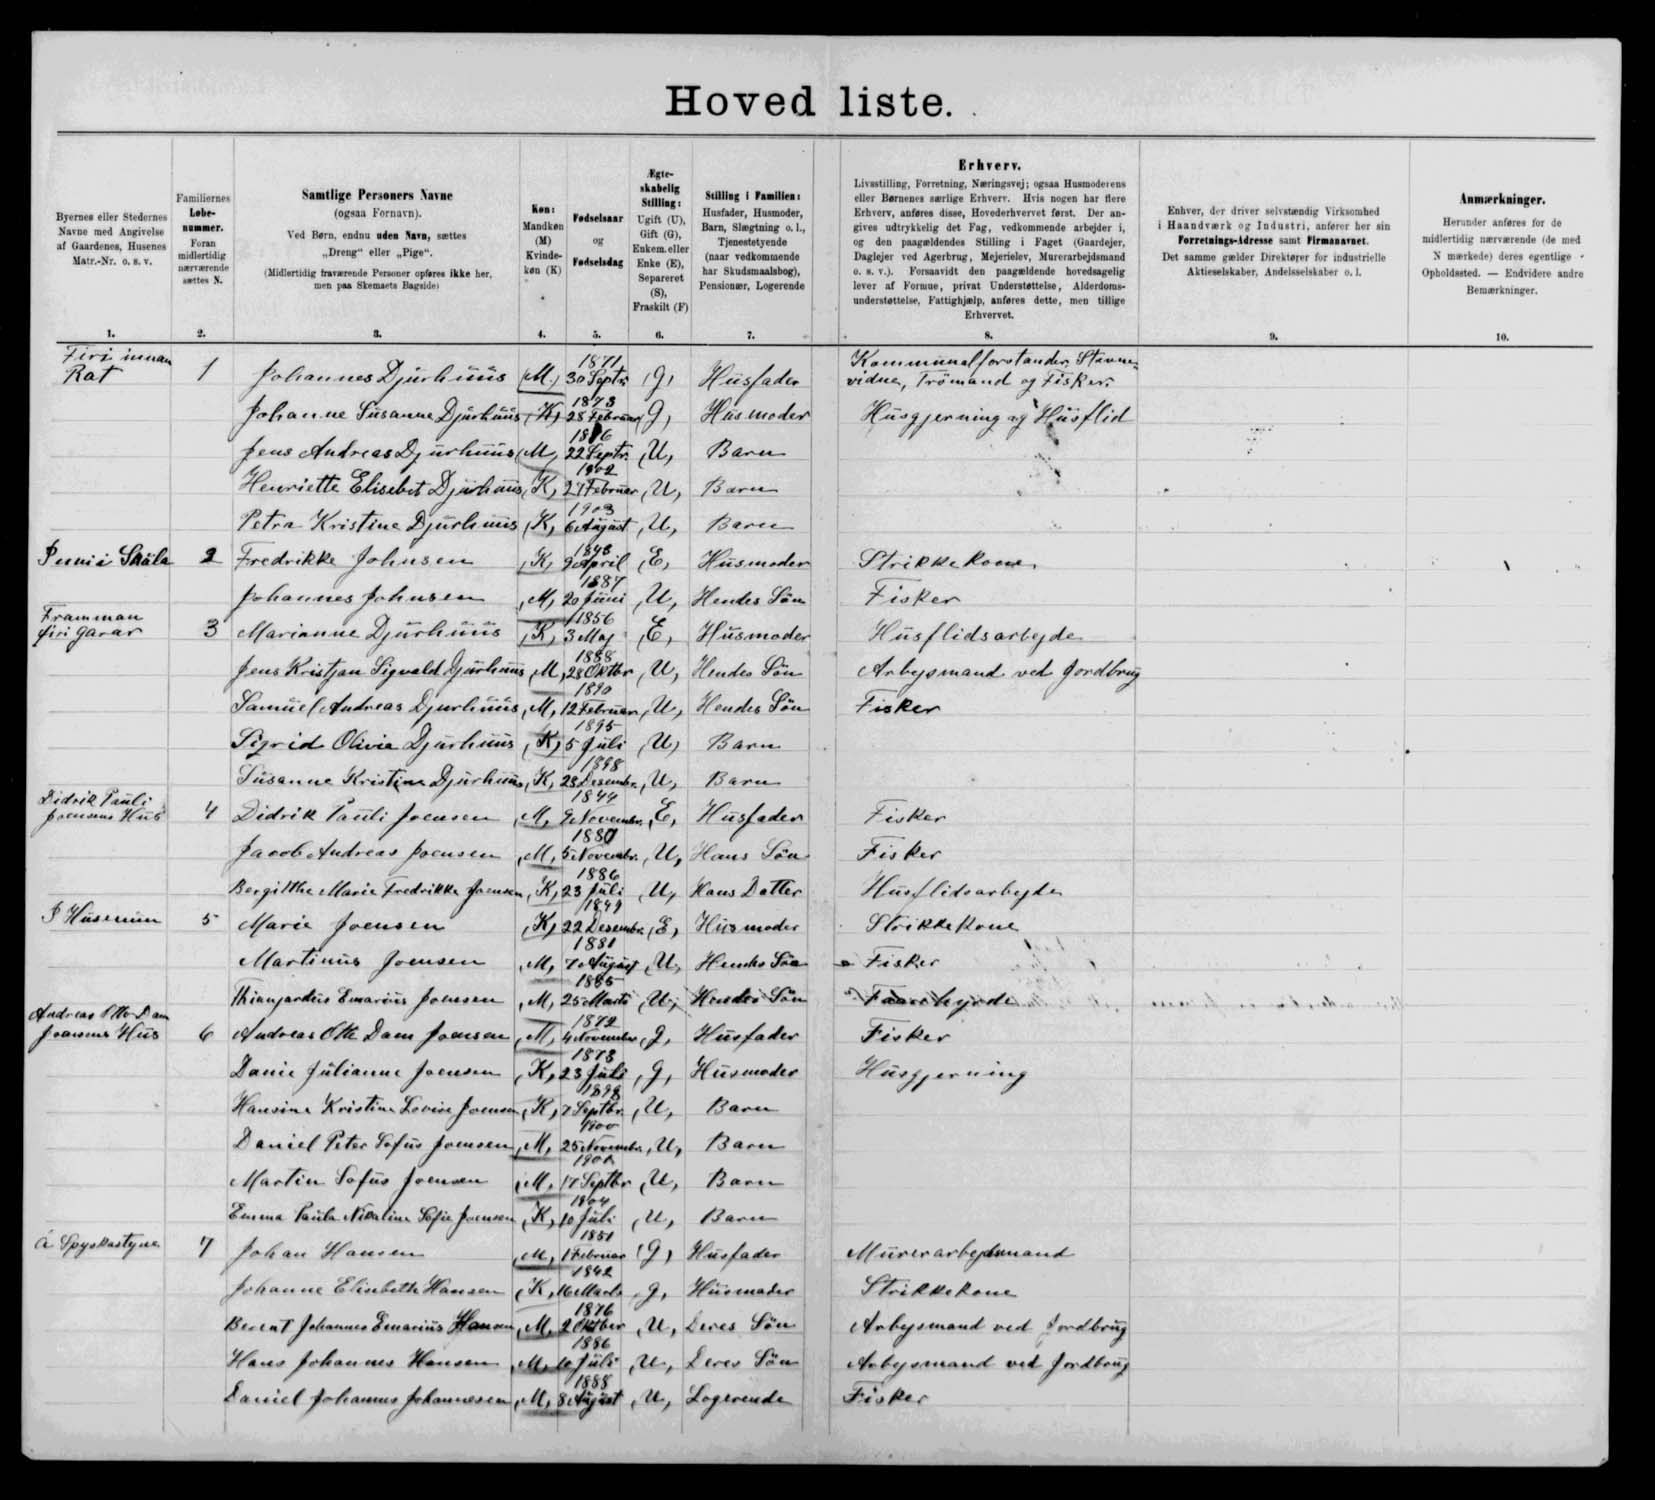 Hoved liste.
Byernes eller Stedernes Navne med Angivelse af Gaardenes, Husenes Matr.-Nr. o. s. v.
Familiernes Løbe-nummer. Foran midlertidig nærværende sættes N.
Samtlige Personers Navne (ogsaa Fornavn). Ved Børn, endnu uden Navn, sættes „Dreng“ eller „Pige“. (Midlertidig fraværende Personer opføres ikke her, men paa Skemaets Bagside)
Køn: Mandkøn (M) Kvinde-køn (K)
Fødselsaar og Fødselsdag
Ægte-skabelig Stilling: Ugift (U), Gift (G), Enkem. eller Enke (E), Separeret (S), Fraskilt (F)
Stilling i Familien: Husfader, Husmoder, Barn, Slægtning o. l., Tjenestetyende (naar vedkommende har Skudsmaalsbog), Pensionær, Logerende
Erhverv. Livsstilling, Forretning, Næringsvej; ogsaa Husmoderens eller Børnenes særlige Erhverv. Hvis nogen har flere Erhverv, anføres disse, Hovederhvervet først. Der an-gives udtrykkelig det Fag, vedkommende arbejder i, og den paagældendes Stilling i Faget (Gaardejer, Daglejer ved Agerbrug, Mejerielev, Murerarbejdsmand o. s. v.). Forsaavidt den paagældende hovedsagelig lever af Formue, privat Understøttelse, Alderdoms-understøttelse, Fattighjælp, anføres dette, men tillige Erhvervet.
Enhver, der driver selvstændig Virksomhed i Haandværk og Industri, anfører her sin Forretnings-Adresse samt Firmanavnet. Det samme gælder Direktører for industrielle Aktieselskaber, Andelsselskaber o. l.
Anmærkninger. Herunder anføres for de midlertidig nærværende (de med N mærkede) deres egentlige Opholdssted. — Endvidere andre Bemærkninger.
1. 2. 3. 4. 5. 6. 7. 8. 9. 10.
Firi innan Rat 1 Johannes Djurhuus (M) 1871 30 Septr. (G) Husfader Kommunalforstander, Stevne-vidne, Trömand og Fisker.
Johanne Susanne Djurhuus (K) 1873 28 Februar (G, Husmoder Husgjerning og Husflid
Jens Andreas Djurhuus (M, 22 Septr. (U, Barn
Henriette Elisebet Djurhuus (K, 1902 27 Februar (U, Barn
Petra Kristine Djurhuus (K, 1903 6 August (U, Barn
2 Fredrikke Johnsen (K, 1848 9 April (E, Husmoder Strikkekone
Johannes Johnsen (M, 1887 20 Juni (U, Hendes Sön Fisker
Framman firi garar 3 Marianne Djurhuus (K, 1856 3 Maj (E, Husmoder Husflidsarbejde
Jens Kristjan Sigvald Djurhuus (M, 1888 28 Oktbr (U, Hendes Sön Arbejsmand ved Jordbrug
Samuel Andreas Djurhuus (M, 1890 12 Februar (U, Hendes Sön Fisker
Sigrid Olivia Djurhuus (K) 1895 5 Juli (U) Barn
Susanne Kristine Djurhuus (K, 1898 28 Desembr. (U, Barn
Didrik Pauli Joensens Hus 4 Didrik Pauli Joensen (M, 1844 9 Novembr. (E, Husfader Fisker
Jacob Andreas Joensen (M, 1880 5 Novembr. (U, Hans Sön Fisker
Bergitthe Marie Fredrikke Joensen (K, 1886 23 Juli (U, Hans Datter Husflidsarbejde
I Húsinum 5 Marie Joensen (K) 1849 22 Desembr. (E, Husmoder Strikkekone
Martinus Joensen (M, 1881 7 August (U, Hendes Sön Fisker
Emarius Joensen (M, 1885 25 Marts (U, Hendes Sön Faarehyrde
Andreas Otto Dam Joensens Hus 6 Andreas Otto Dam Joensen (M, 1872 4 November (G, Husfader Fisker
Danie Julianne Joensen (K, 1873 23 Juli (G, Husmoder Husgjerning
Hansine Kristine Lovise Joensen (K, 1898 7 Septbr. (U, Barn
Daniel Peter Sofus Joensen (M, 1900 25 Novembr. (U, Barn
Martin Sofus Joensen (M, 17 Septbr (U, Barn
Emma Paula Nikoline Sofie Joensen (K, 1904 10 Juli (U, Barn
á 7 Johan Hansen (M, 1851 1 Februar (G) Husfader Murerarbejdsmand
Johanne Elisebeth Hansen (K, 1842 16 Marts (G, Husmoder Strikkekone
Berent Johannes Emarius Hansen (M, 1876 2 Oktber (U, Deres Sön Arbejsmand ved Jordbrug
Hans Johannes Hansen (M, 1886 10 Juli (U, Deres Sön Arbejsmand ved Jordbrug
Daniel Johannus Johannesen (M, 1888 8 August (U, Logerende Fisker